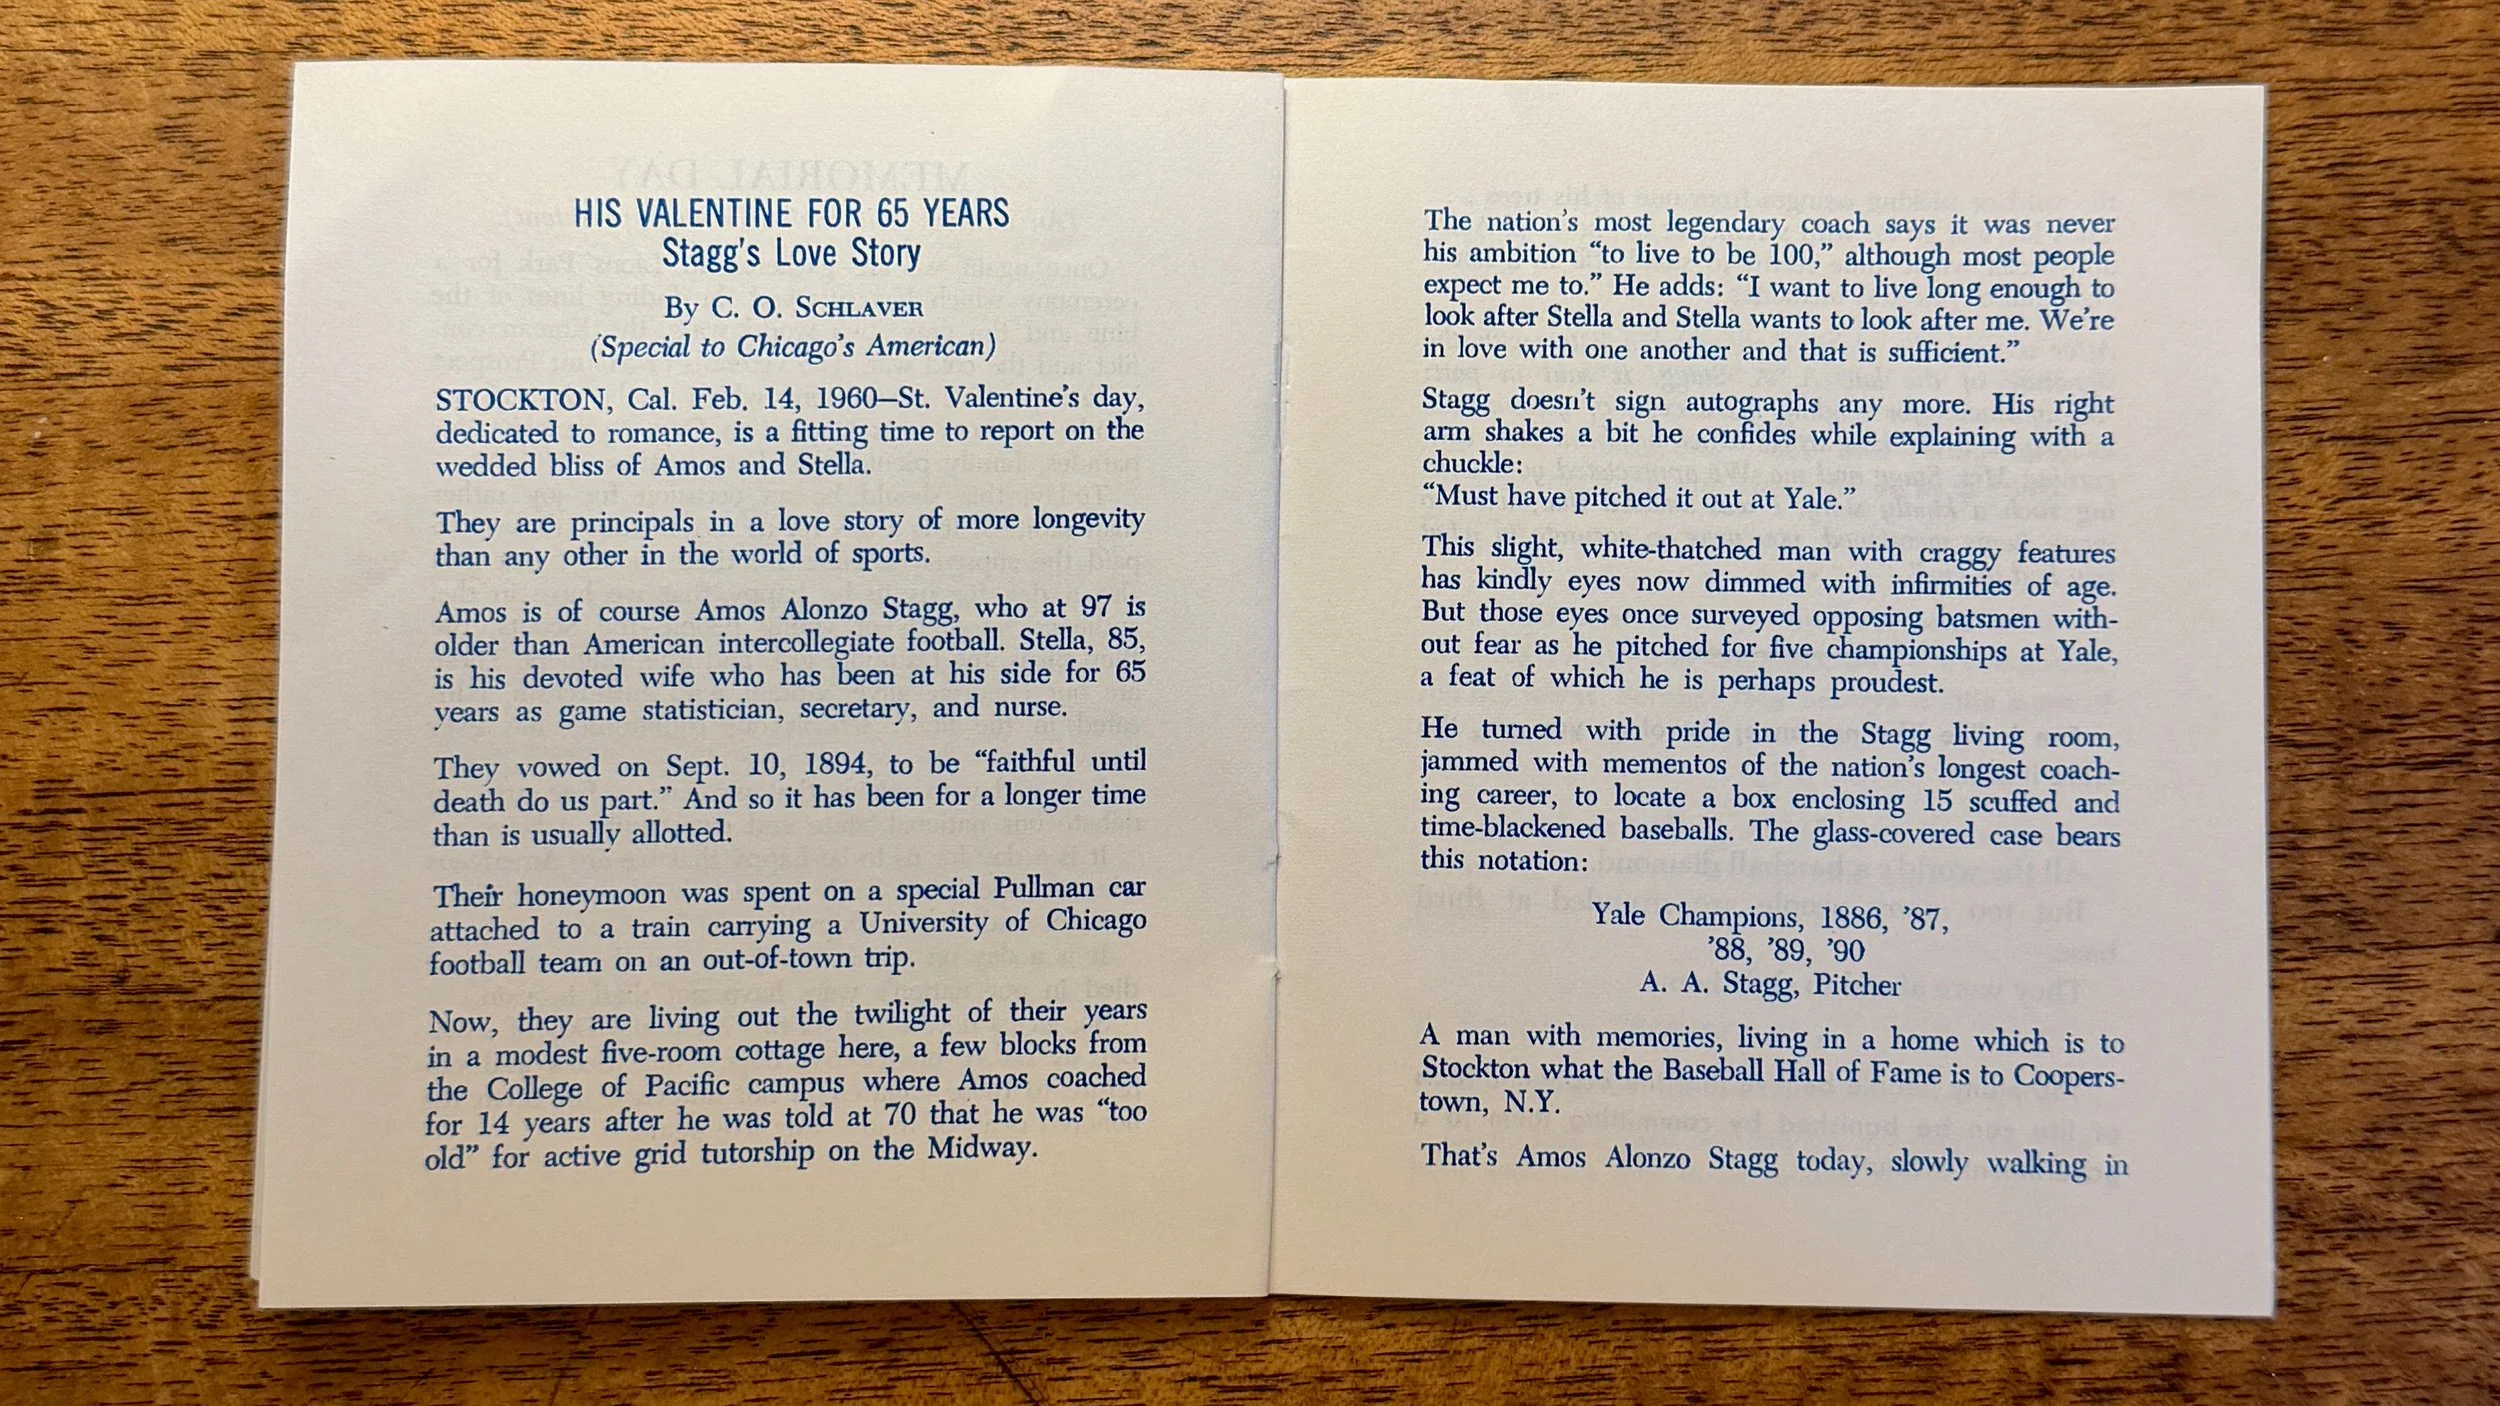 HIS VALENTINE FOR 65 YEARS
Stagg's Love Story
By C. O. SCHLAVER
(Special to Chicago's American)
STOCKTON, Cal. Feb. 14, 1960—St. Valentine's day,
dedicated to romance, is a fitting time to report on the
wedded bliss of Amos and Stella.
They are principals in a love story of more longevity
than any other in the world of sports.
Amos is of course Amos Alonzo Stagg, who at 97 is
older than American intercollegiate football. Stella, 85,
is his devoted wife who has been at his side for 65
years as game statistician, secretary, and nurse.
They vowed on Sept. 10, 1894, to be “faithful until
death do us part.” And so it has been for a longer time
than is usually allotted.
Their honeymoon was spent on a special Pullman car
attached to a train carrying a University of Chicago
football team on an out-of-town trip.
Now, they are living out the twilight of their years
in a modest five-room cottage here, a few blocks from
the College of Pacific campus where Amos coached
for 14 years after he was told at 70 that he was “too
old” for active grid tutorship on the Midway.
The nation's most legendary coach says it was never
his ambition “to live to be 100,” although most people
expect me to.” He adds: “I want to live long enough to
look after Stella and Stella wants to look after me. We're
in love with one another and that is sufficient.”
Stagg doesn't sign autographs any more. His right
arm shakes a bit he confides while explaining with a
chuckle:
“Must have pitched it out at Yale.”
This slight, white-thatched man with craggy features
has kindly eyes now dimmed with infirmities of age.
But those eyes once surveyed opposing batsmen with-
out fear as he pitched for five championships at Yale,
a feat of which he is perhaps proudest.
He turned with pride in the Stagg living room,
jammed with mementos of the nation's longest coach-
ing career, to locate a box enclosing 15 scuffed and
time-blackened baseballs. The glass-covered case bears
this notation:
Yale Champions, 1886, '87,
'88, '89, '90
A. A. Stagg, Pitcher
A man with memories, living in a home which is to
Stockton what the Baseball Hall of Fame is to Coopers-
town, N.Y.
That's Amos Alonzo Stagg today, slowly walking in